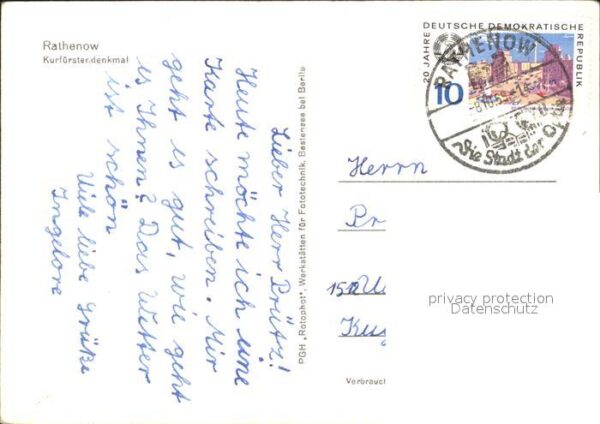 Rathenow
Kurfürstendenkmal
Lieber Herr Prütz!
Heute möchte ich eine
Karte schreiben. Mir
geht es gut, wie geht
es Ihnen? Das Wetter
ist schön
Viele liebe Grüße
Ingelore
PGH „Rotophot", Werkstätten für Fototechnik, Bestensee bei Berlin
20 JAHRE DEUTSCHE DEMOKRATISCHE REPUBLIK
10
RATHENOW
Die Stadt der
Herrn
Pr
Kug
privacy protection
Datenschutz
Verbrauch